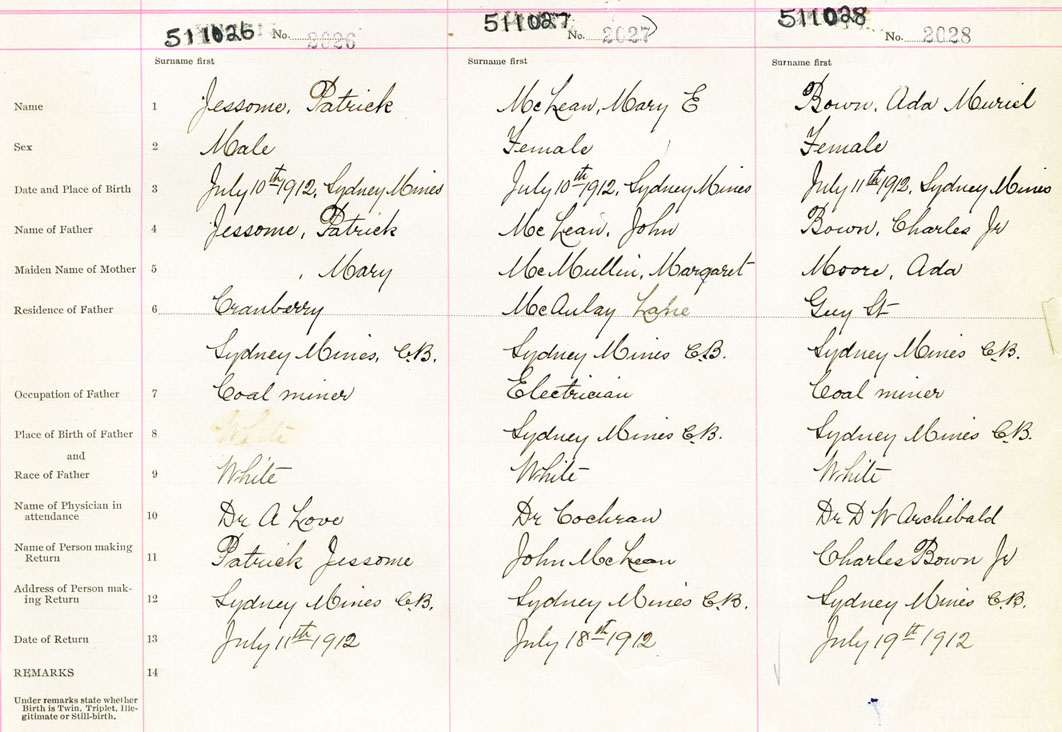 511026 No. 2026 511027 No. 2027) 511028 No. 2028
Surname first Surname first Surname first
Name 1 Jessome, Patrick McLean, Mary E Bown, Ada Muriel
Sex 2 Male Female Female
Date and Place of Birth 3 July 10th 1912, Sydney Mines July 10th 1912, Sydney Mines July 11th 1912, Sydney Mines
Name of Father 4 Jessome, Patrick McLean, John Bown, Charles Jr
Maiden Name of Mother 5 , Mary McMullin, Margaret Moore, Ada
Residence of Father 6 Cranberry McAulay Lane Guy St
Sydney Mines, C.B. Sydney Mines C.B. Sydney Mines C.B.
Occupation of Father 7 Coal miner Electrician Coal miner
Place of Birth of Father 8 White Sydney Mines C.B. Sydney Mines C.B.
and
Race of Father 9 White White White
Name of Physician in
attendance 10 Dr A Love Dr Cochran Dr D W Archibald
Name of Person making
Return 11 Patrick Jessome John McLean Charles Bown Jr
Address of Person mak-
ing Return 12 Sydney Mines C.B. Sydney Mines C.B. Sydney Mines C.B.
Date of Return 13 July 11th 1912 July 18th 1912 July 19th 1912
REMARKS 14
Under remarks state whether
Birth is Twin, Triplet, Ille-
gitimate or Still-birth.